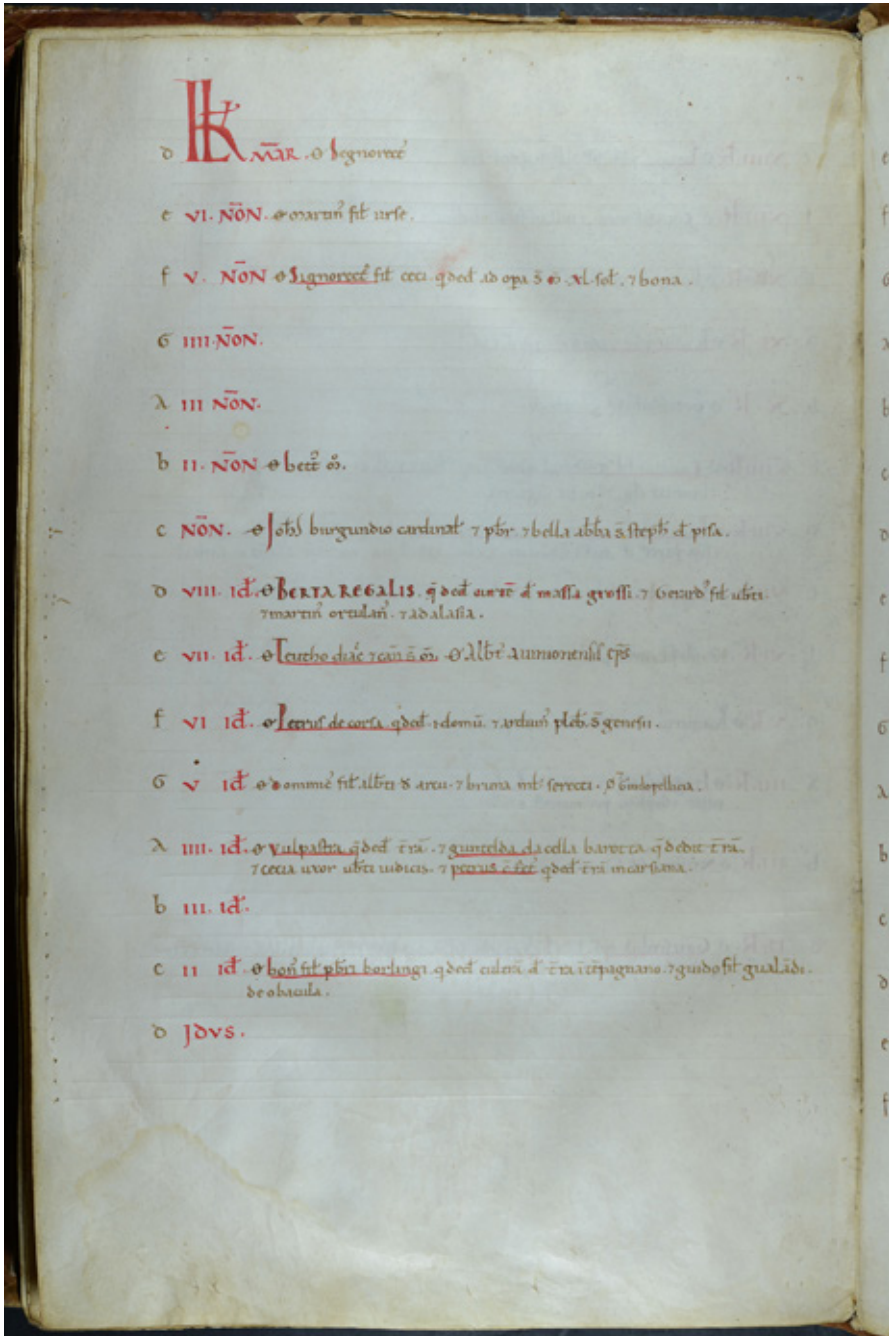 d KL MAR. O Segnorect
e VI. NON. O martin fil urse.
f V. NON O Signorect fil ceci. q ded ad opa s m xl. sol. 7 bona.
G IIII. NON.
A III NON.
b II. NON O bect m.
c NON. O Johs burgundio cardinal 7 pbr 7 bella abba s. steph d pisa.
d VIII. Id. O BERTA REGALIS. q ded curte d massa grossi. 7 Gerard fil ubti
7 martin ortulan. 7 adalasia.
e VII. Id. O Teutho diac 7 can s. m. O Albt Auinionensis eps
f VI Id. O Petrus de corsa q ded. domu. 7 arduin pleb. s. genesii.
G V Id O dominic fil albti d arcu. 7 briona
A IIII. Id. O vulpastra q ded tra. 7 guntelda da cella barotta q dedit tra.
7 cecia uxor ubti iudicis. 7 petrus q ded tra in carsiana.
b III. Id.
c II Id O bon fil pbri borlingi. q ded cultra d tra 7 guido fil gualadi.
de obacula.
d IDVS.